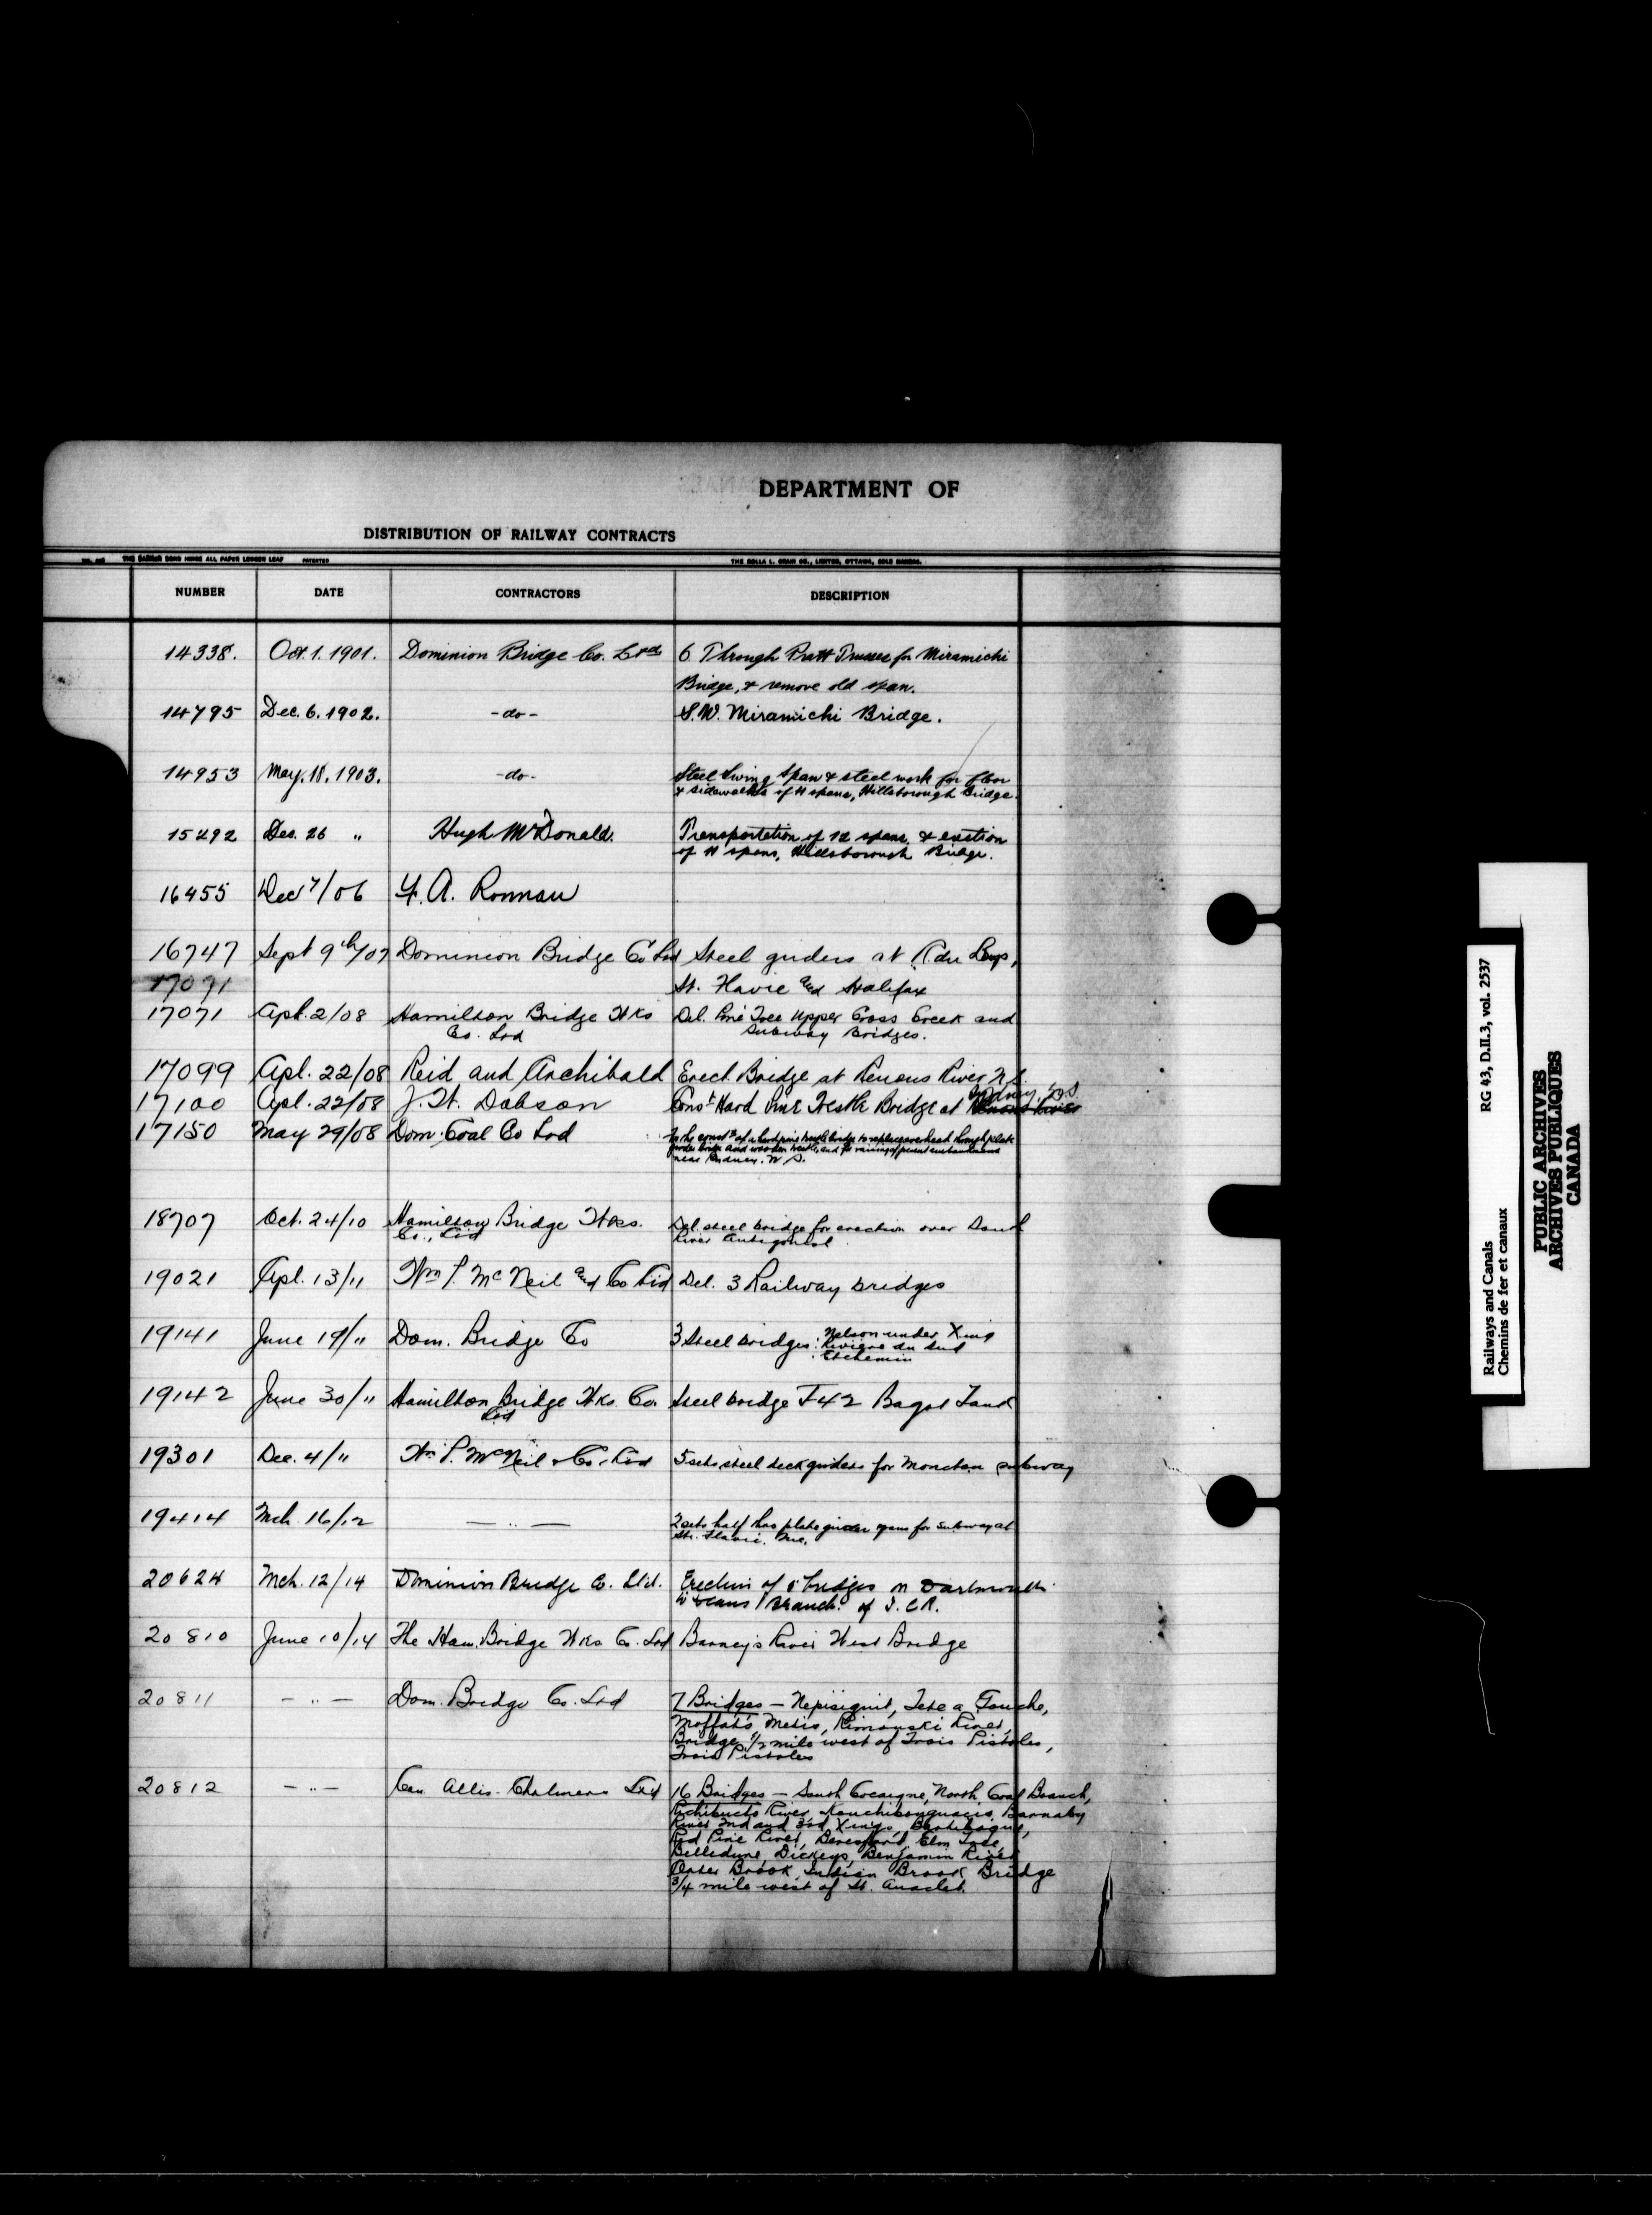 DEPARTMENT OF
DISTRIBUTION OF RAILWAY CONTRACTS
NUMBER DATE CONTRACTORS DESCRIPTION
14338. Oct. 1. 1901. Dominion Bridge Co. Ltd 6 Through Pratt Trusses for Miramichi
Bridge, & remove old span.
14795 Dec. 6. 1902. -do- S.W. Miramichi Bridge.
14953 May. 18. 1903. -do- Steel Swing Span & steel work for floor
& sidewalks of 11 spans, Hillsborough Bridge.
15292 Dec. 26 " Hugh McDonald. Transportation of 12 spans, & erection
of 11 spans, Hillsborough Bridge.
16455 Dec 7/06 A. Ronnan
16747 Sept 9th/07 Dominion Bridge Co Ltd Steel girders at R du Loup,
17071 St. Flavie and Halifax
17071 Apl. 2/08 Hamilton Bridge Wks Del. Pine Tree Upper Cross Creek and
Co. Ltd Subway Bridges.
17099 Apl. 22/08 Reid and Archibald Erect Bridge at Renous River N.B.
17100 Apl. 22/08 J. W. Dobson Const Hard Pine Trestle Bridge at Sydney, N.S.
17150 May 29/08 Dom. Coal Co Ltd For the const of a hard pine trestle bridge to replace overhead through plate
girder bridge and wooden trestle, and for raising of present embankment
near Sydney. N.S.
18707 Oct. 24/10 Hamilton Bridge Wks. Del. steel bridge for erection over South
Co., Ltd River Antigonish
19021 Apl. 13/11 Wm P. McNeil and Co Ltd Del. 3 Railway bridges
19141 June 19/11 Dom. Bridge Co 3 Steel bridges: Nelson under Xing
Riviere du Sud
Etchemin
19142 June 30/11 Hamilton Bridge Wks. Co. Steel bridge T42 Bagot Tank
Ltd
19301 Dec. 4/11 Wm P. McNeil & Co. Ltd 5 sets steel deck girders for Moncton subway
19414 Mch. 16/12 — " — 2 sets half thro plate girder spans for Subway at
Ste. Flavie. Que.
20624 Mch. 12/14 Dominion Bridge Co. Ltd. Erection of 8 bridges on Dartmouth
to Deans Branch of I.C.R.
20810 June 10/14 The Ham. Bridge Wks Co. Ltd Barney's River West Bridge
20811 — " — Dom. Bridge Co. Ltd 7 Bridges — Nepisiguit, Tete a Gauche,
Moffat's Metis, Rimouski River,
Bridge 1/2 mile west of Trois Pistoles,
Trois Pistoles
20812 — " — Can Allis-Chalmers Ltd 16 Bridges — South Cocaigne, North Coal Branch,
Richibucto River, Kouchibouguacis, Barnaby
River 2nd and 3rd Xings, Bartibogue,
Red Pine River, Beresford, Elm Tree,
Belledune, Dickeys, Benjamin River
Otter Brook, Indian Brook, Bridge
3/4 mile west of St. Anaclet.
Railways and Canals RG 43, D.II.3, vol. 2537
Chemins de fer et canaux
PUBLIC ARCHIVES
ARCHIVES PUBLIQUES
CANADA